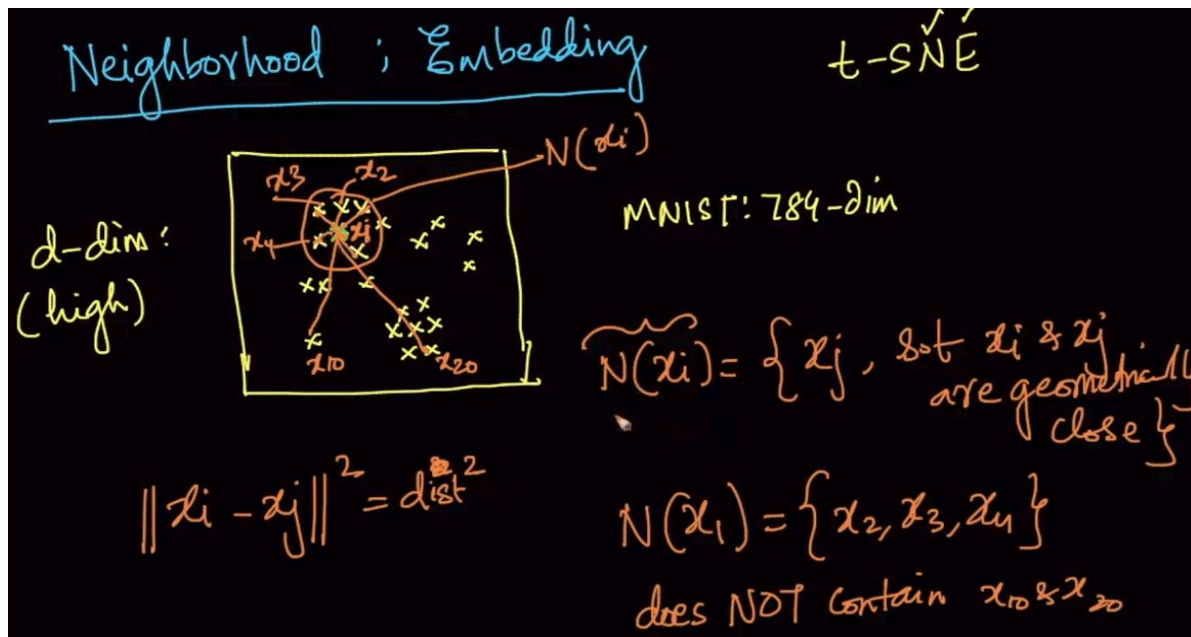 Neighborhood ; Embedding
t-SNE
N(xi)
x3 x2
x4 xi
d-dim:
(high)
x10 x20
MNIST: 784-dim
N(xi) = {xj, s.t xi & xj
are geometrically
close}
||xi - xj||² = dist²
N(x1) = {x2, x3, x4}
does NOT contain x10 & x20